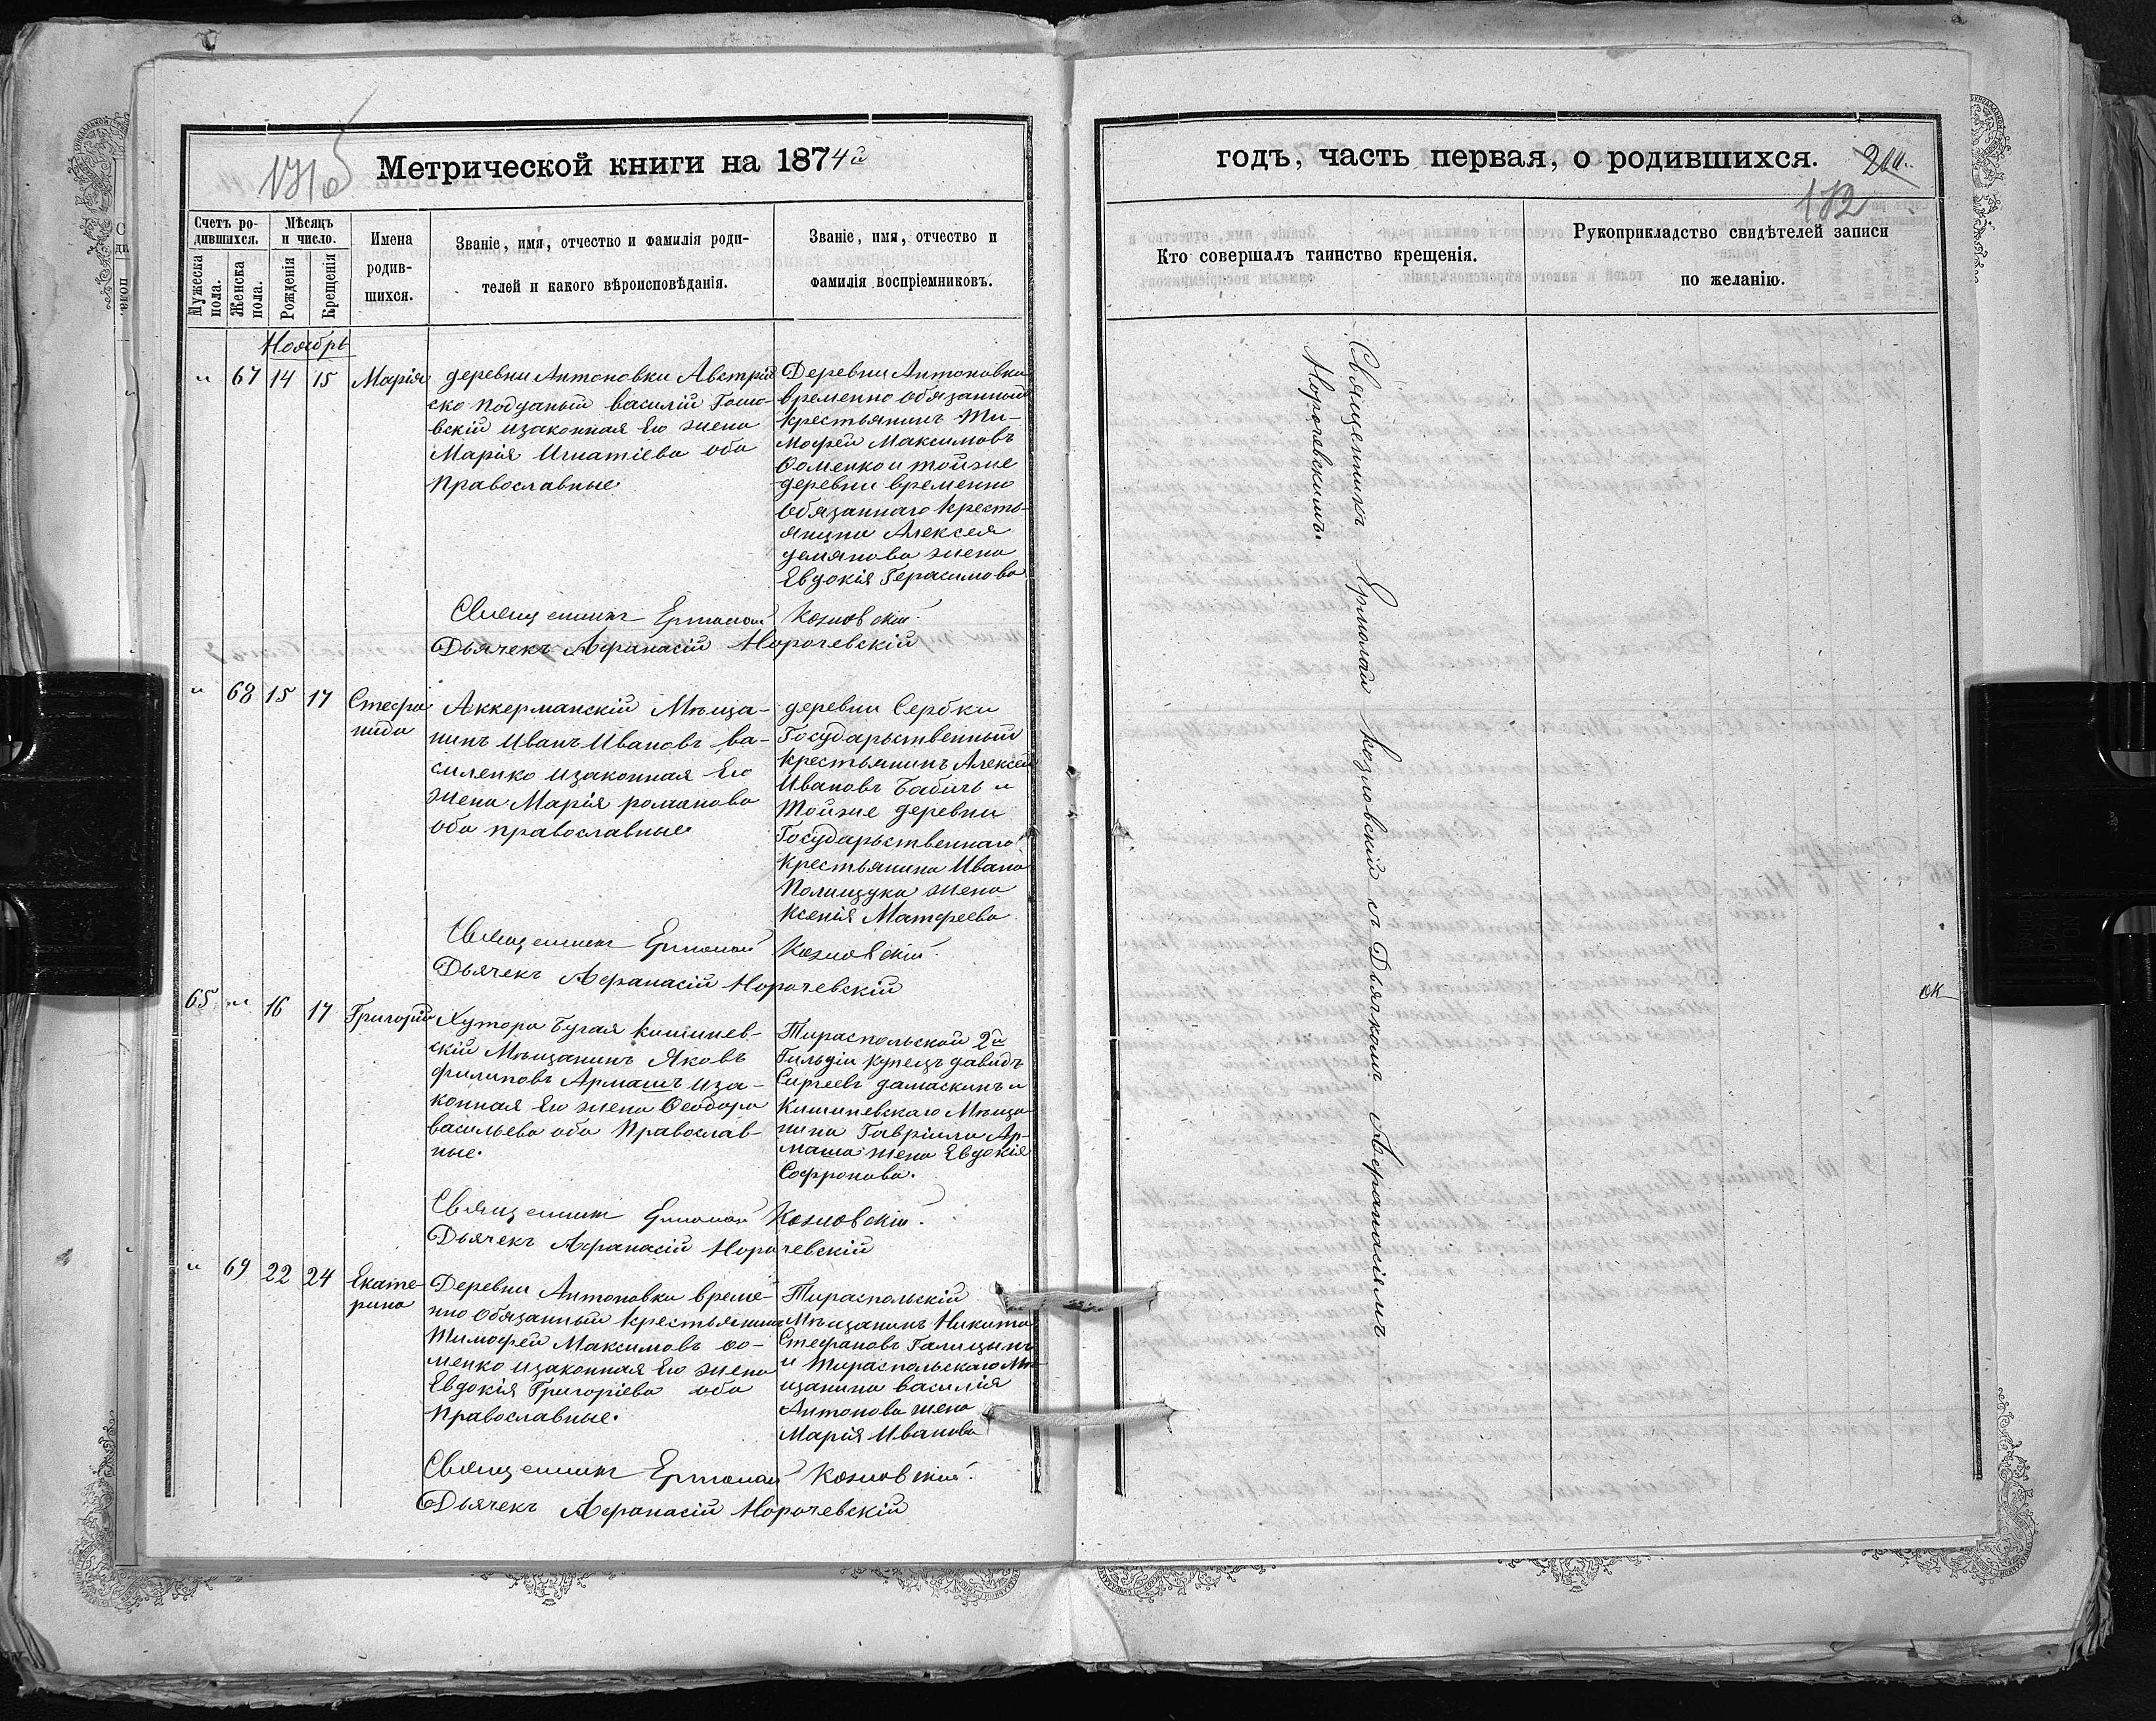 Метрической книги на 1874й
годъ, часть первая, о родившихся.
182
Счетъ родившихся.
Мужеска пола.
Женска пола.
Мѣсяцъ и число.
Рожденія
Крещенія
Имена родив-
шихся.
Званіе, имя, отчество и фамилія роди-
телей и какого вѣроисповѣданія.
Званіе, имя, отчество и
фамилія воспріемниковъ.
Кто совершалъ таинство крещенія.
Рукоприкладство свидѣтелей записи
по желанію.
Ноябрь
" 67 14 15 Марія
деревни Антоновки Австрій
ско подданый василій
вскій изаконная Его жена
Марія Игнатіева оба
Православные
Деревни Антоновки
временно обязанный
крестьянинъ Ти-
мофей Максимовъ
Ѳоменко и тойже
деревни временно
Обязаннаго кресть-
янина Алексея
демянова жена
Евдокія Герасимова
Священникъ Ермолай Козловскій.
Дьячекъ Афанасій Норочевскій
" 68 15 17 Стефа
нида
Аккерманскій Мѣща-
нинъ Иванъ Ивановъ ва-
силенко изаконная Его
жена Марія романова
оба православные
деревни Сербки
Государьственный
крестьянинъ Алексей
Ивановъ Бабичъ и
Тойже деревни
Государьственнаго
Крестьянина Ивана
Полищука жена
Ксенія Матфеева
Священникъ Ермолай Козловскій.
Дьячекъ Афанасій Норочевскій
65 " 16 17 Григорій
Хутора Бугая Кишинев-
скій Мѣщанинъ Яковъ
филиповъ Армашъ иза-
конная Его жена Ѳеодора
васильева оба Православ-
ные.
Тираспольской 2й
Гильдіи купецъ давидъ
Сиргеевъ дамаскинъ и
Кишиневскаго Мѣща
нина Гавріила Ар-
маша жена Евдокія
Софронова.
Священникъ Ермолай Козловскій.
Дьячекъ Афанасій Норочевскій
" 69 22 24 Екате-
рина
Деревни Антоновки време-
нно Обязанный крестьянинъ
Тимофей Максимовъ Ѳо-
менко изаконная Его жена
Евдокія Григоріева оба
Православные.
Тираспольскій
Мѣщанинъ Никита
Стефановъ Галицынъ
и Тираспольскаго Мѣ-
щанина василія
Антонова жена
Марія Иванова
Священникъ Ермолай Козловскій.
Дьячекъ Афанасій Норочевскій
Священникъ Ермолай Козловскій съ Дьячкомъ Афанасіемъ
Норочевскимъ
ок